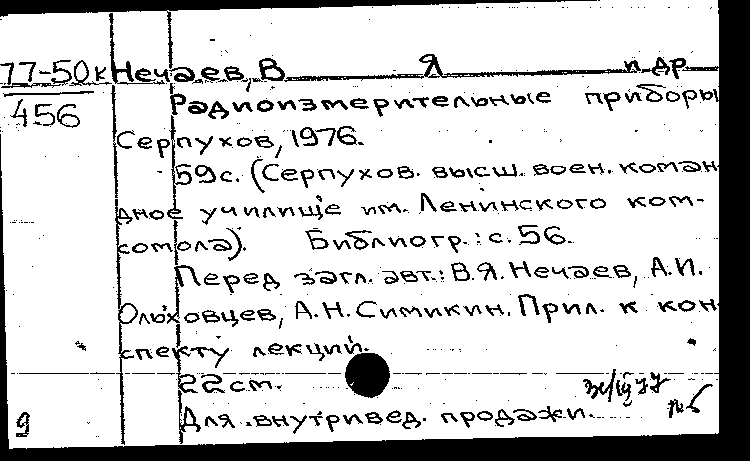 77-50к Нечаев, В Я и др
456
Радиоизмерительные приборы
Серпухов, 1976.
59с. (Серпухов. высш. воен. коман
дное училище им. Ленинского ком-
сомола). Библиогр.: с. 56.
Перед загл. авт.: В.Я. Нечаев, А.И.
Ольховцев, А.Н. Симикин. Прил. к кон
спекту лекций.
22см.
9 Для внутривед. продажи.